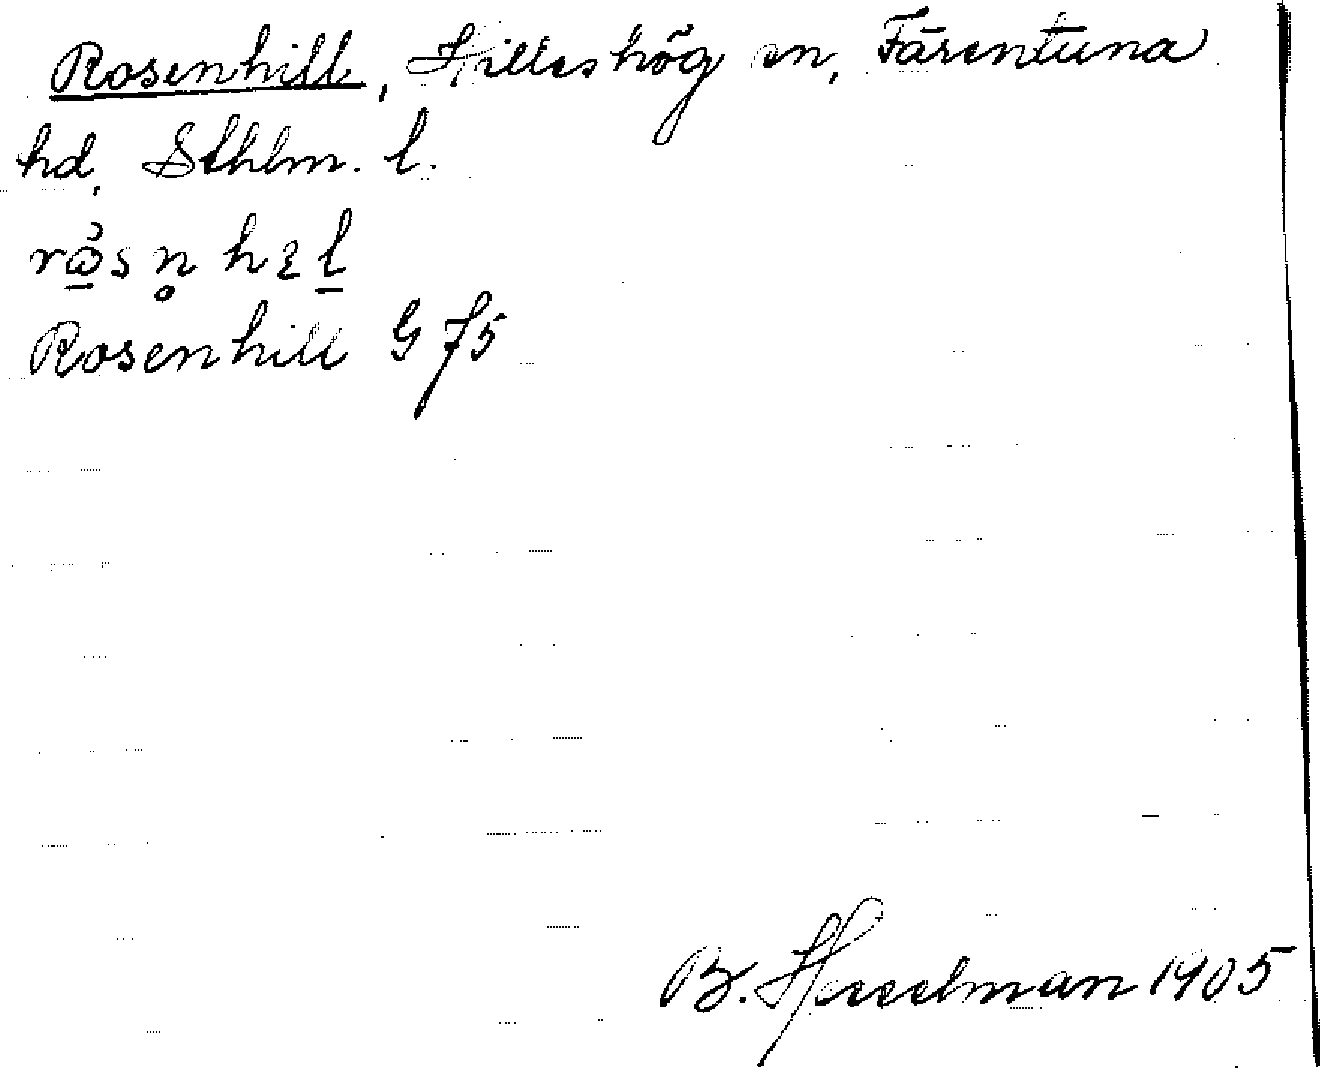 Rosenhill, Hilleshög sn, Färentuna
hd, Sthlm. l.
Rosenhill G 75
B. Hesselman 1905